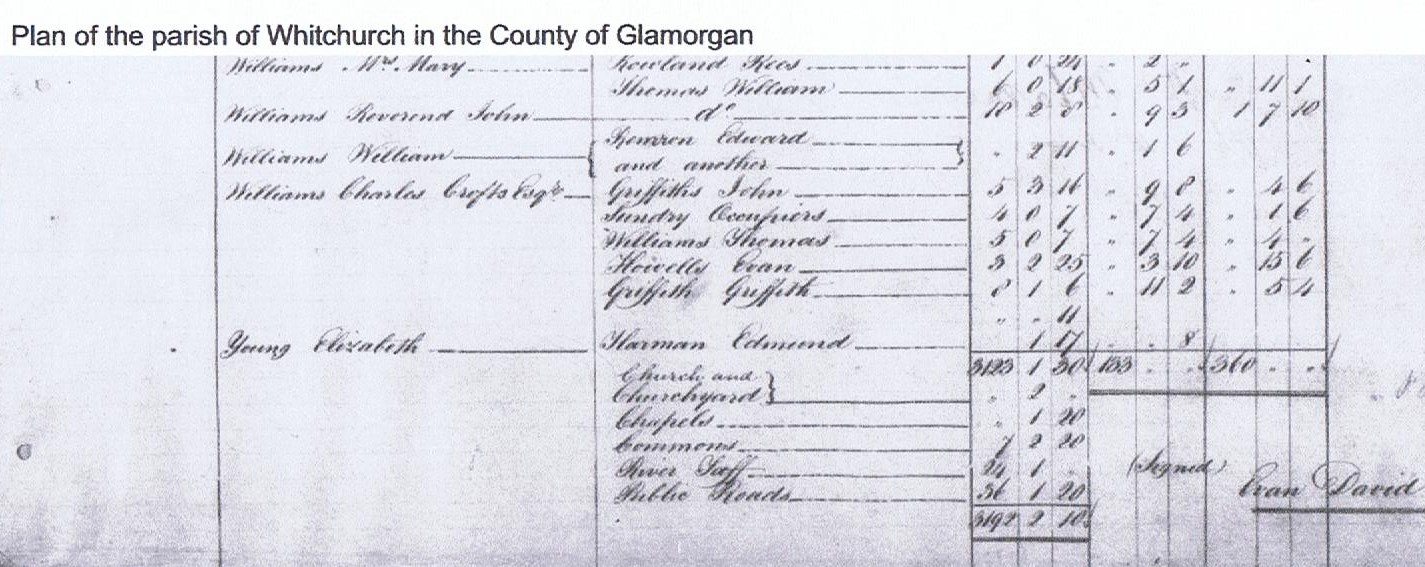 Plan of the parish of Whitchurch in the County of Glamorgan
Williams Mrs. Mary Rowland Rees 1 0 24 " 2 "
Thomas William 6 0 18 " 5 1 " 11 1
Williams Reverend John do. 18 2 8 " 9 3 1 7 10
Edward
Williams William { } " 2 11 " 1 6
and another
Williams Charles Crofts Esqre Griffiths John 5 3 16 " 9 8 " 4 6
Sundry Occupiers 4 0 7 " 7 4 " 1 6
Williams Thomas 5 0 7 " 7 4 " 4 "
Howells Evan 3 2 25 " 3 10 " 15 6
Griffith Griffith 8 1 6 " 11 2 " 5 4
" " 11
Young Elizabeth Harman Edmund 1 17 " 8
Church and 3123 1 30 133 " " 360 " "
Churchyard } " 2 "
Chapels " 1 20
Commons 7 2 20
River Taff 24 1 " (Signed)
Public Roads 36 1 20 Evan David
3192 2 10